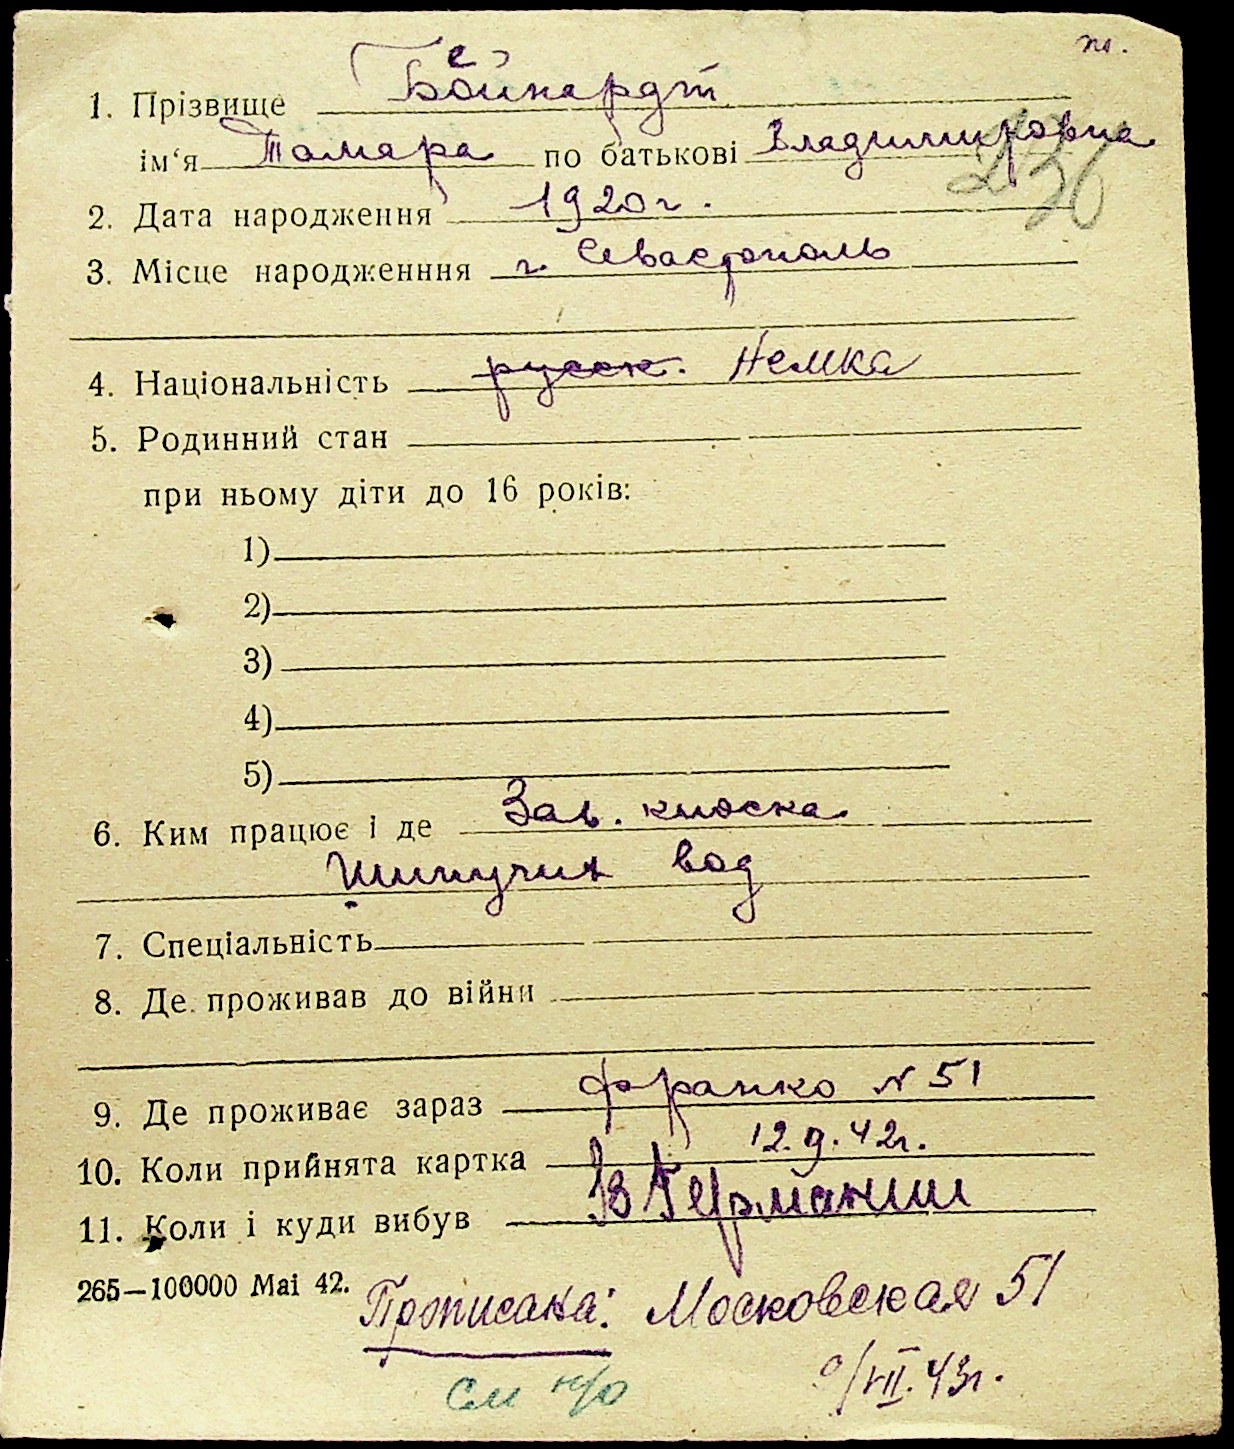 1. Прізвище Бейнардт
ім‘я Тамара по батькові Владимировна
236
2. Дата народження 1920 г.
3. Місце народженння г. Севастополь
4. Національність русск. Немка
5. Родинний стан
при ньому діти до 16 років:
1)
2)
3)
4)
5)
6. Ким працює і де Зав. киоска
Шипучих вод
7. Спеціальність
8. Де проживав до війни
9. Де проживає зараз Франко N 51
10. Коли прийнята картка 12.9.42г.
11. Коли і куди вибув В Германии
265—100000 Mai 42.
Прописана: Московская 51
см н/о
/VII.43г.